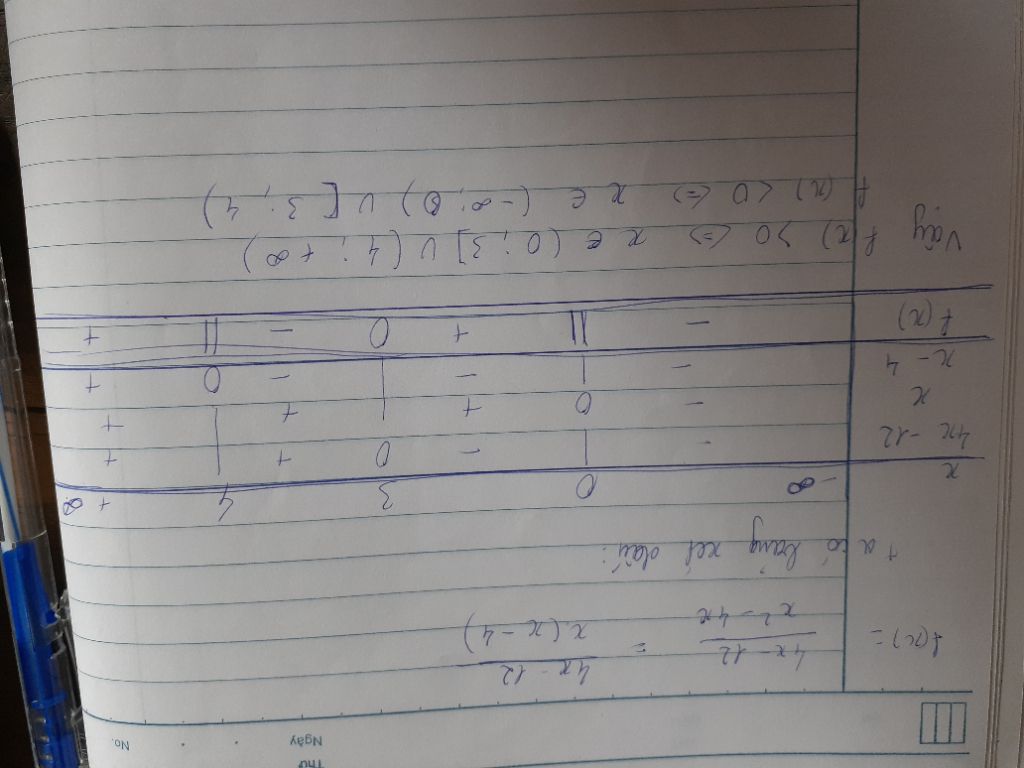 Thứ
Ngày
No.
f(x) = \frac{4x - 12}{x² - 4x} = \frac{4x - 12}{x.(x - 4)}
ta có bảng xét dấu:
x -∞ 0 3 4 +∞
4x - 12 - | - 0 + | +
x - 0 + | + | +
x - 4 - | - | - 0 +
f(x) - || + 0 - || +
Vậy f(x) > 0 <=> x ∈ (0; 3] ∪ (4; +∞)
f(x) < 0 <=> x ∈ (-∞; 0) ∪ [3; 4)